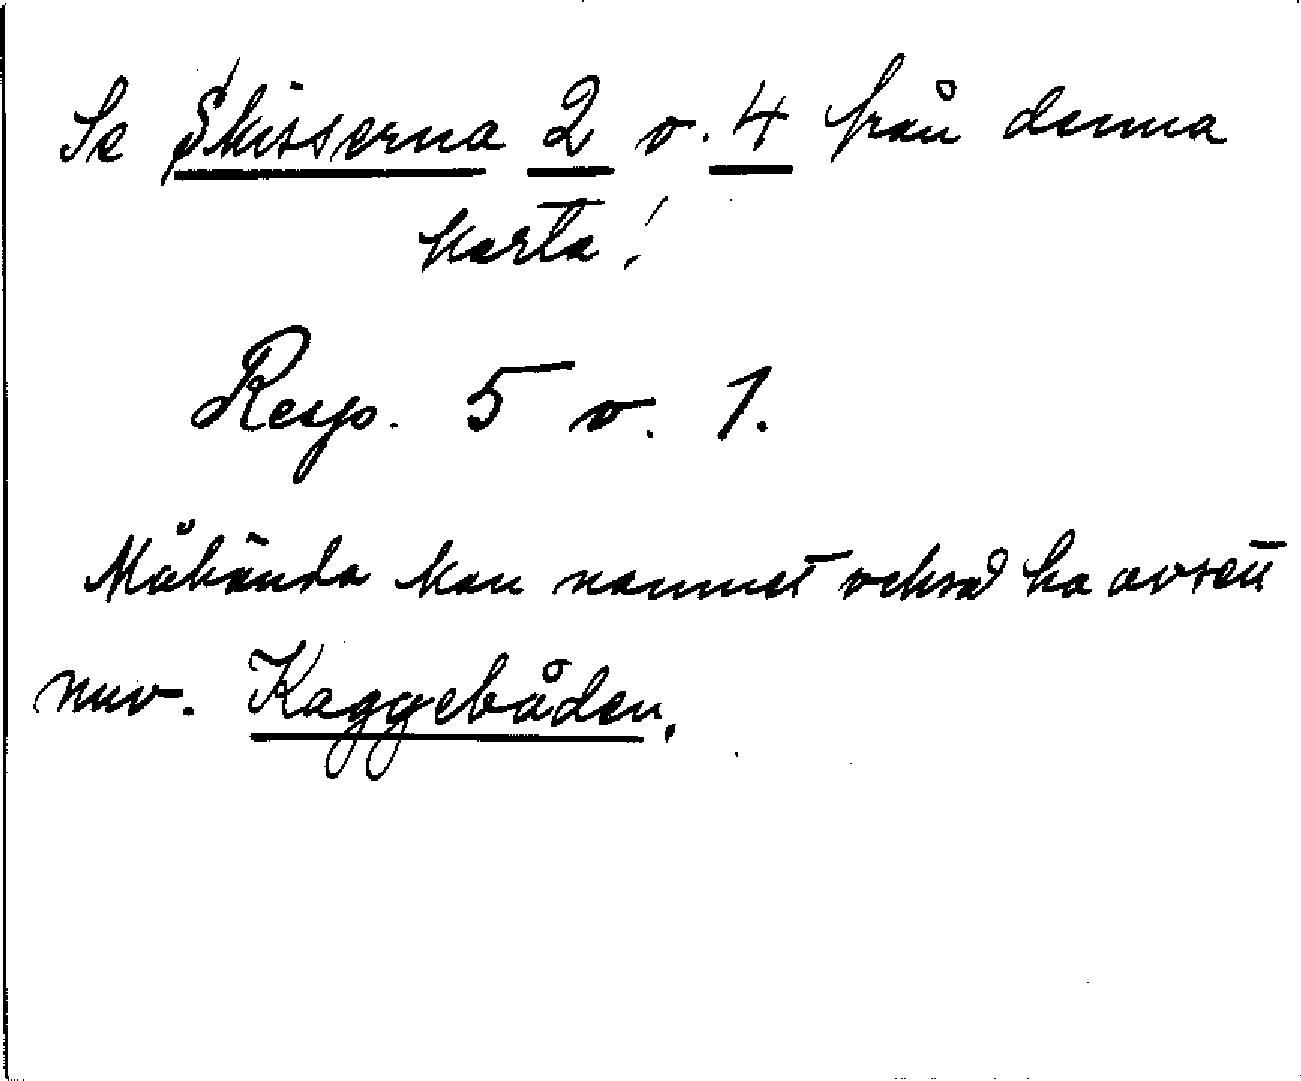 Se Skisserna 2 o. 4 från denna
karta!
Resp. 5 o. 1.
Måhända kan namnet också ha avsett
nuv. Kaggebåden.